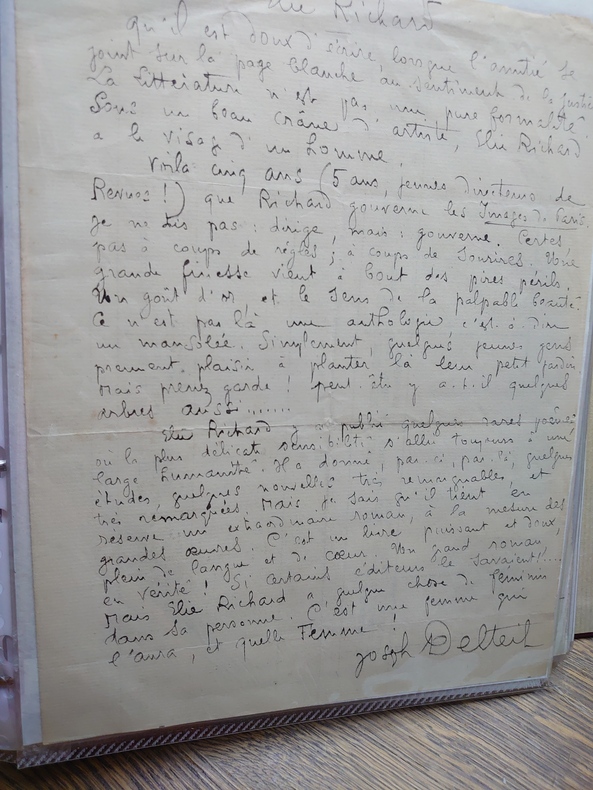 Elie Richard
Qu'il est doux d'écrire, lorsque l'amitié se
joint sur la page blanche au sentiment de la justice
La littérature n'est pas une pure formalité.
Sous un beau crâne d'artiste, Elie Richard
a le visage d'un homme.
Voilà cinq ans (5 ans, jeunes directeurs de
Revues !) que Richard gouverne les Images de Paris.
Je ne dis pas : dirige, mais : gouverne. Certes,
pas à coups de règles ; à coups de sourires. Une
grande finesse vient à bout des pires périls.
Un goût d'or, et le sens de la palpable beauté.
Ce n'est pas là une anthologie c'est-à-dire
un mausolée. Simplement, quelques jeunes gens
prennent plaisir à planter là leur petit jardin.
Mais prenez garde ! peut-être y a-t-il quelques
arbres aussi.......
Elie Richard y a publié quelques rares poèmes
où la plus délicate sensibilité s'allie toujours à une
large humanité. Il a donné, par-ci, par-là, quelques
études, quelques nouvelles très remarquables, et
très remarquées. Mais je sais qu'il tient en
réserve un extraordinaire roman, à la mesure des
grandes œuvres. C'est un livre puissant et doux,
plein de langue et de cœur. Un grand roman,
en vérité ! Si certains éditeurs le savaient !....
Mais Elie Richard a quelque chose de féminin
dans sa personne. C'est une femme qui
l'aura, et quelle Femme !
Joseph Delteil